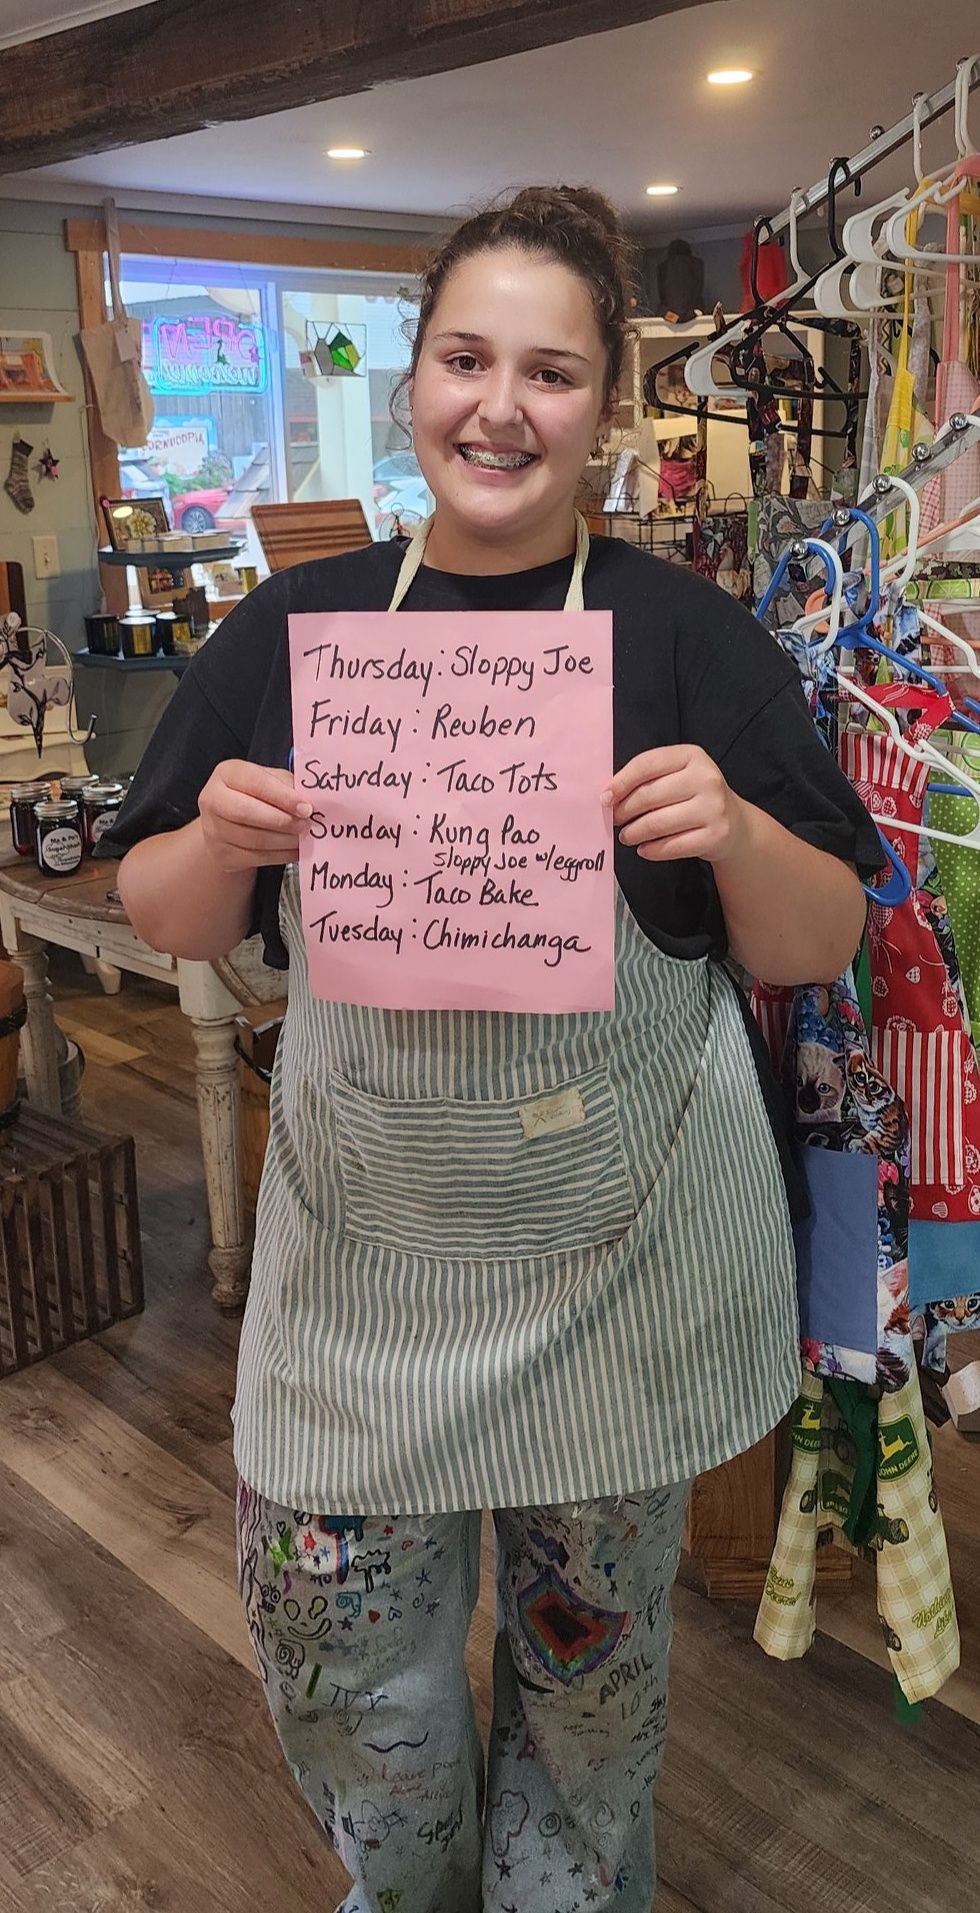 OPEN
CORNUCOPIA
Thursday: Sloppy Joe
Friday: Reuben
Saturday: Taco Tots
Sunday: Kung Pao
Sloppy Joe w/eggroll
Monday: Taco Bake
Tuesday: Chimichanga
JOHN DEERE
APRIL
10th